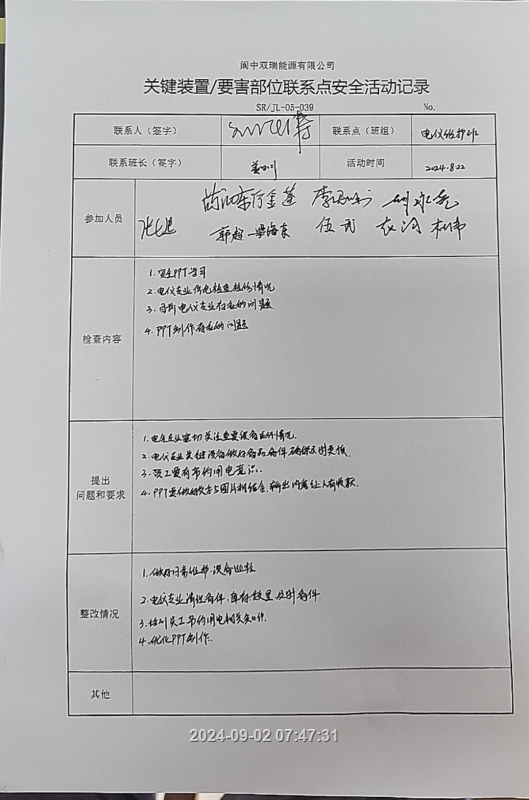 阆中双瑞能源有限公司
关键装置/要害部位联系点安全活动记录
SR/JL-05-039 No.
联系人（签字） 联系点（班组） 电仪维护班
联系班长（签字） 活动时间 2024.8.22
参加人员
郭超 伍武
检查内容
1.安全PPT学习
2.电仪专业供电检查检修情况
3.分析电仪专业存在的问题
4.PPT制作存在的问题
提出
问题和要求
1.电气专业密切关注重要设备运行情况.
2.电仪专业关键设备做好备品备件确保及时更换.
3.员工要有节约用电意识.
4.PPT要做好文字与图片相结合,输出内容让人有收获.
整改情况
1.做好日常维护,设备巡检
2.电仪专业清理备件,库存数量及时备件
3.培训员工节约用电相关知识.
4.优化PPT制作.
其他
2024-09-02 07:47:31